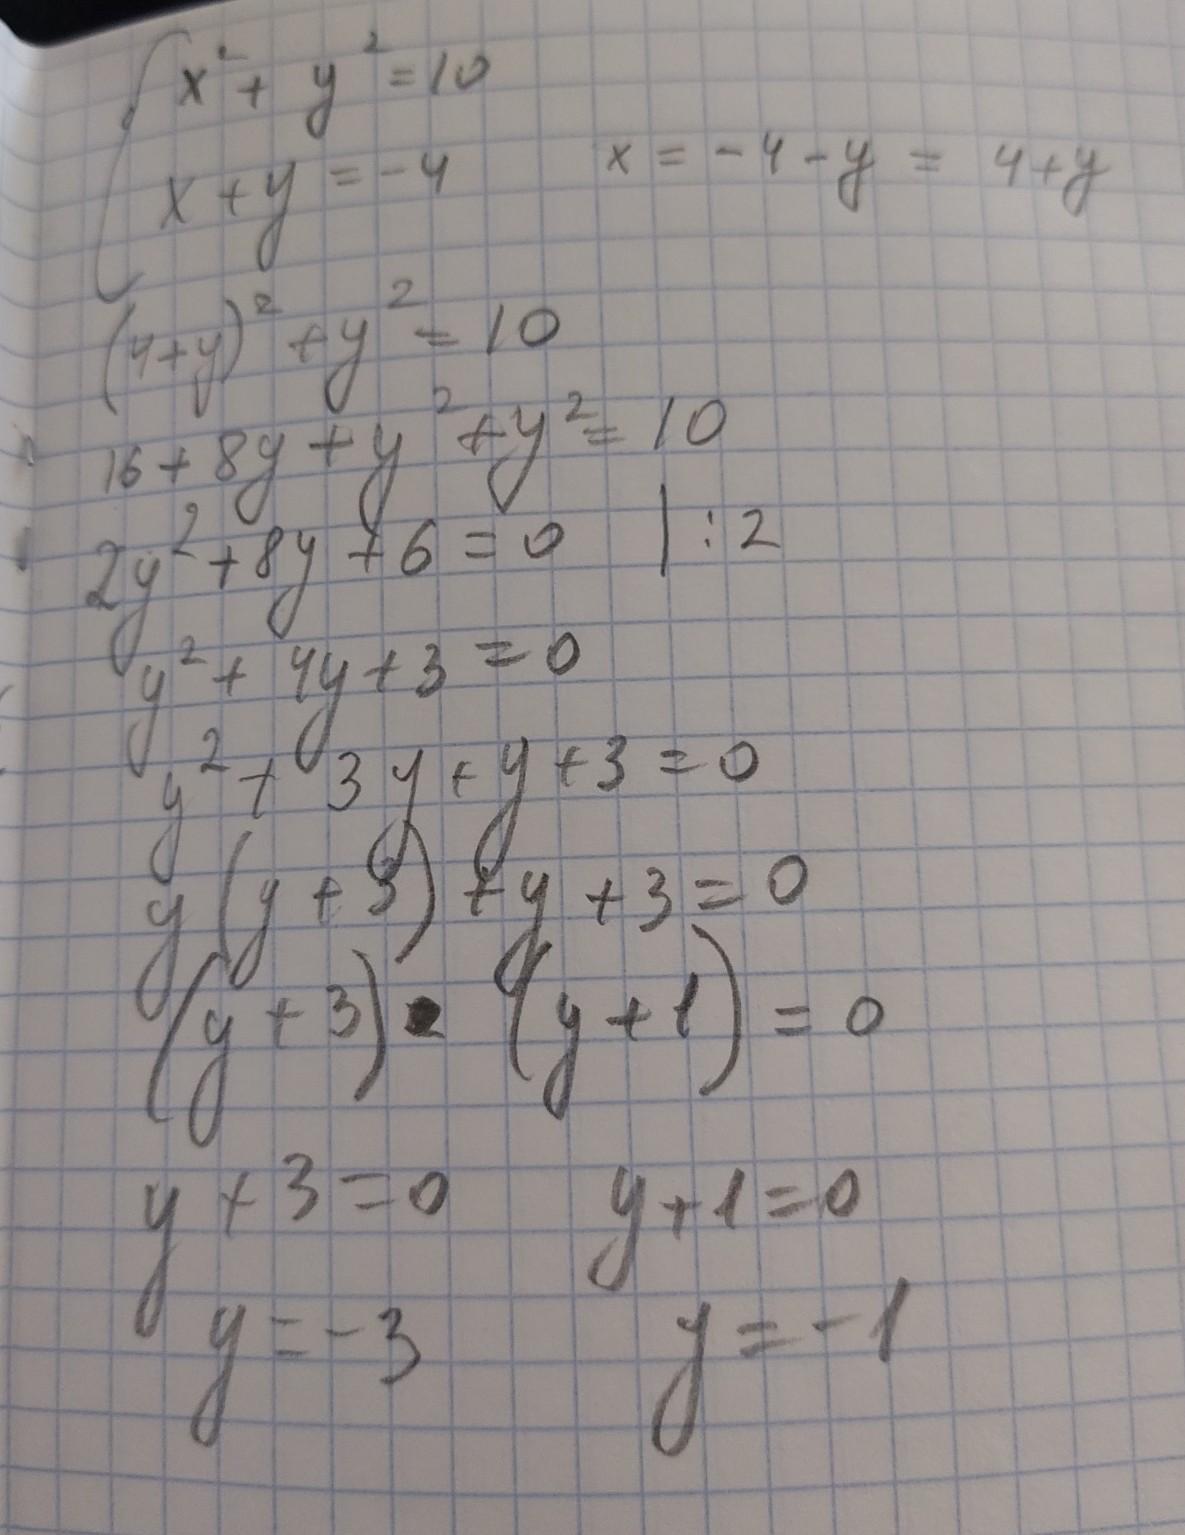 x² + y² = 10
x + y = -4 x = -4 - y = 4 + y
(4+y)² + y² = 10
16 + 8y + y² + y² = 10
2y² + 8y + 6 = 0 | : 2
y² + 4y + 3 = 0
y² + 3y + y + 3 = 0
y(y + 3) + y + 3 = 0
(y + 3) · (y + 1) = 0
y + 3 = 0 y + 1 = 0
y = -3 y = -1